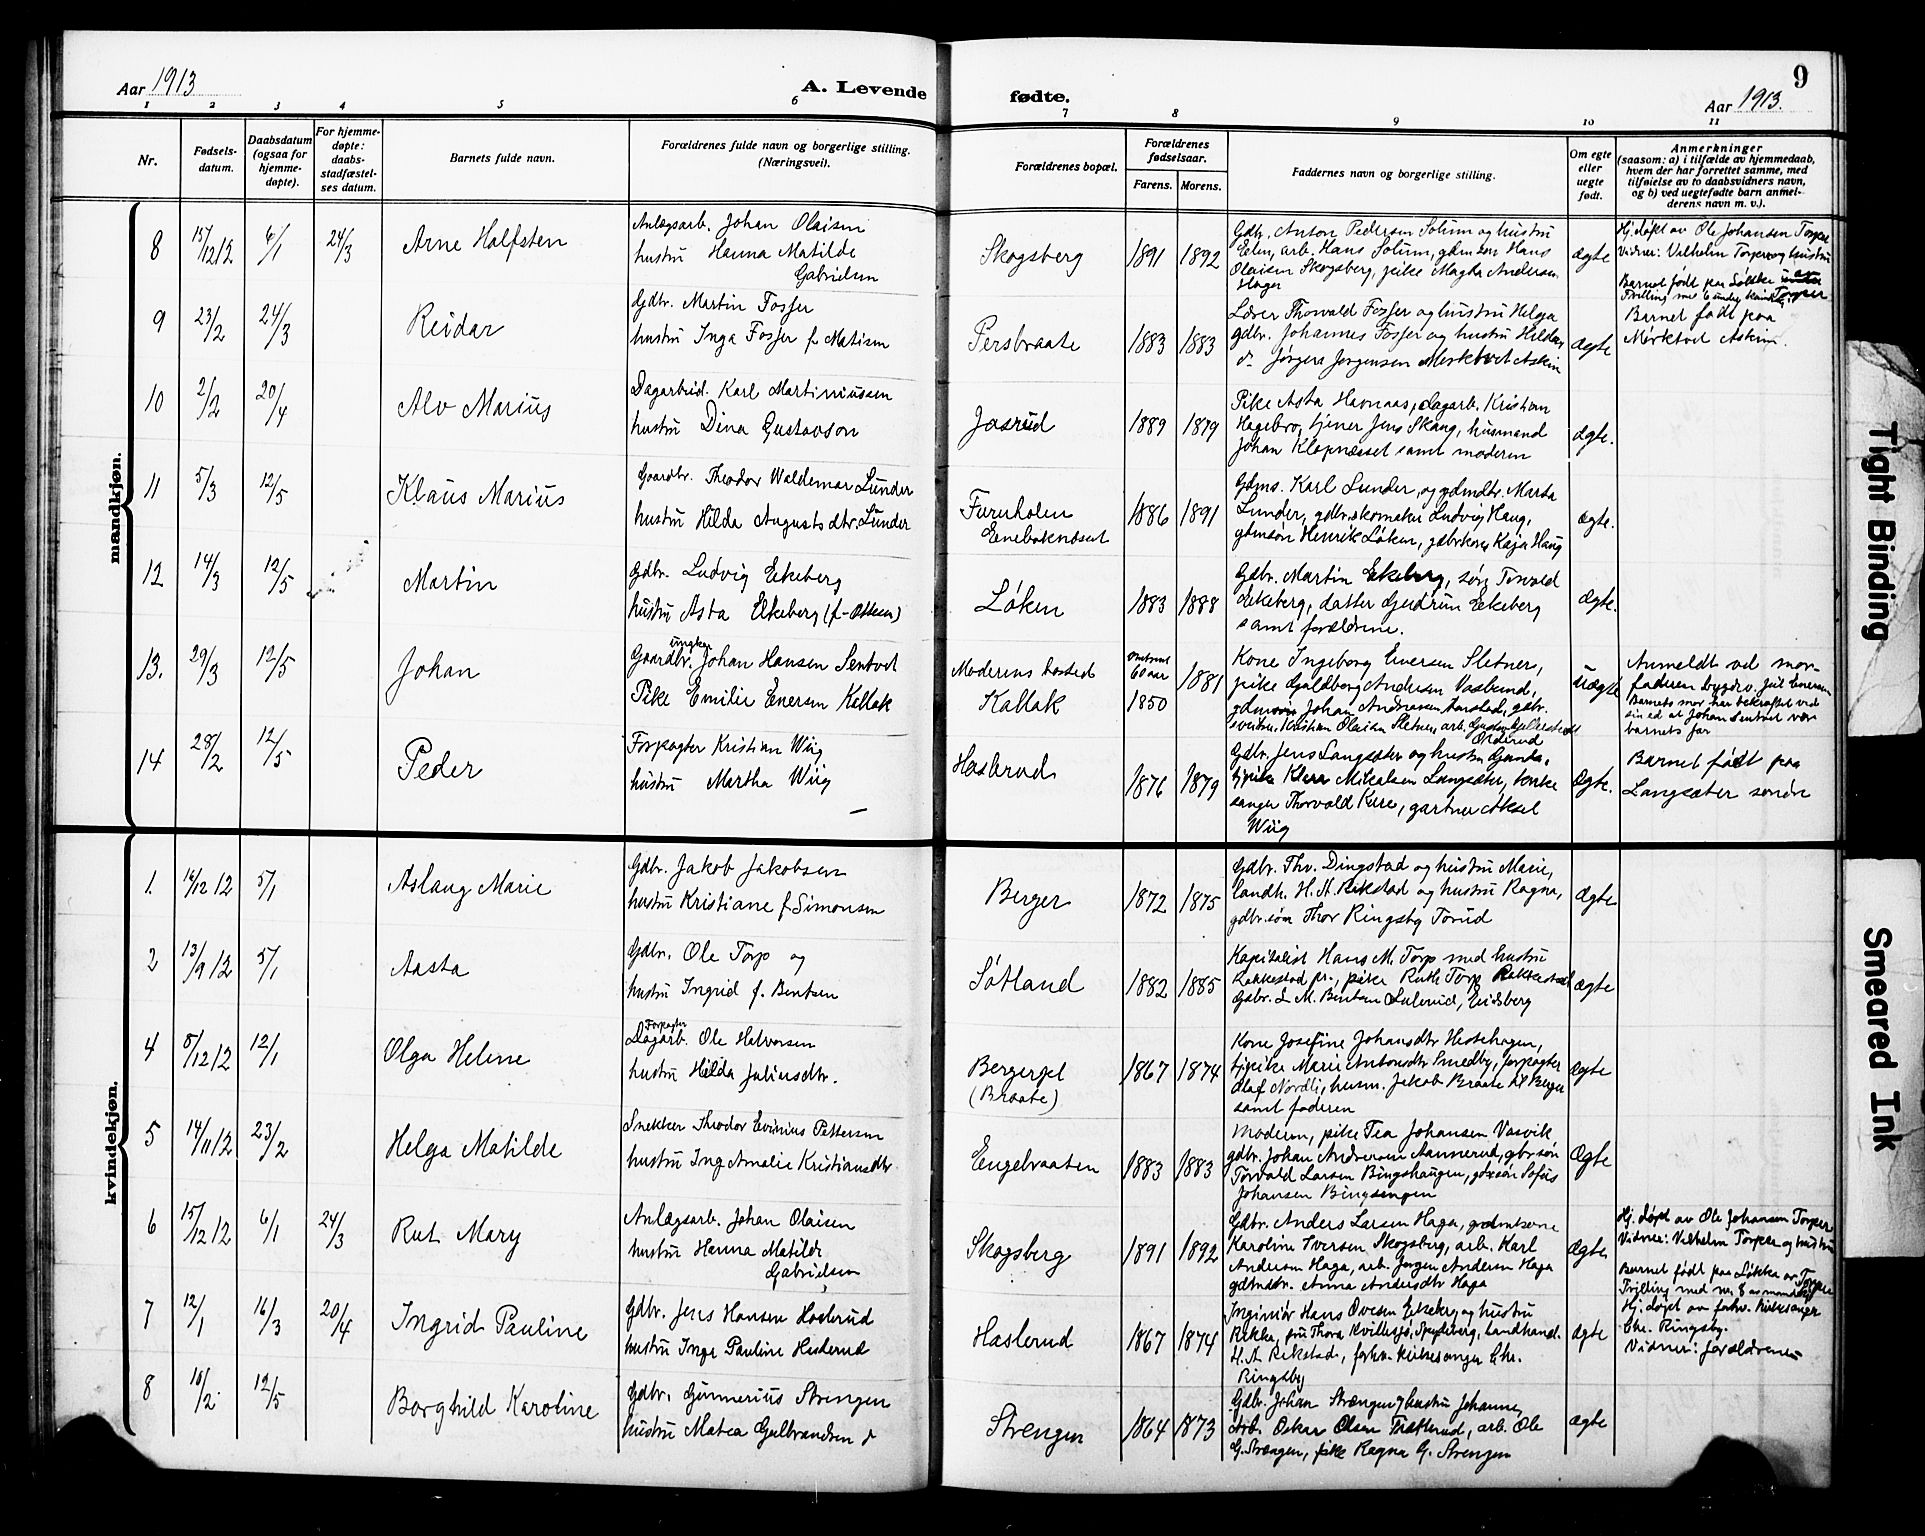 Aar 1913
A. Levende
fødte.
9
Aar 1913.
1 2 3 4 5 6 7 8 9 10 11
Nr.
Fødsels-
datum.
Daabsdatum
(ogsaa for
hjemme-
døpte).
For hjemme-
døpte:
daabs-
stadfæstel-
ses datum.
Barnets fulde navn.
Forældrenes fulde navn og borgerlige stilling.
(Næringsvei).
Forældrenes bopæl.
Forældrenes
fødselsaar.
Farens. Morens.
Faddernes navn og borgerlige stilling.
Om egte
eller
uegte
født.
Anmerkninger
(saasom: a) i tilfælde av hjemmedaab,
hvem der har forrettet samme, med
tilføielse av to daabsvidners navn,
og b) ved uegtefødte barn anmel-
derens navn m. v.).
mandkjøn.
8 15/12 12 6/1 24/3 Arne Halfsten
Anlægsarb. Johan Olaisen
hustru Hanna Matilde
Gabrielsen
Skogsberg 1891 1892
Gdbr. Anton Pedersen Solum og hustru
Elen, arb. Hans Solum, gdmsøn Hans
Olaisen Skogsberg, pike Magda Andersen
Hager
ægte
Hj. døpt av Ole Johansen Torper
Vidner: Vilhelm Torper og hustru
Barnet født paa Løkka
Torper
9 23/2 24/3 Reidar
Gdbr. Martin Fosser
hustru Inga Fosser f. Matisen
Persbraate 1883 1883
Lærer Thorvald Fosser og hustru Helga
gdbr. Johannes Fosser og hustru Hilda,
Jørgen Jørgensen Askim
ægte
Barnet født paa
Askim.
10 2/2 20/4 Alv Marius
Dagarbeid. Karl Martiniussen
hustru Dina Gustavson
Josrud 1889 1879
Pike Asta Havnaas, dagarb. Kristian
Hagebro, tjener Jens Skaug, husmand
Johan Klopnæsset samt moderen
ægte.
11 5/3 12/5 Klaus Marius
Gaardbr. Theodor Waldemar Lunder
hustru Hilda Augustsdtr. Lunder
Furuholen
Eneboknæset 1886 1891
Gdms. Karl Lunder, og gdmdtr. Marta
Lunder, gdbr. skomaker Ludvig Haug,
gdmsøn Henrik Løken, gdbrkone Kaja Haug
ægte.
12 14/3 12/5 Martin
Gdbr. Ludvig Eekeberg
hustru Asta Eekeberg (f. Ottesen)
Løken 1883 1888
Gdbr. Martin Eekeberg, søn Torvald
Eekeberg, datter Gudrun Eekeberg
samt forældrene.
ægte.
13. 29/3 12/5 Johan
ungkar
Gaardbr. Johan Hansen Sentvet
Pike Emilie Enersen Kallak
Moderens bosted
Kallak
omtrent
60 aar
1850 1881
Kone Ingeborg Enersen Sletner,
pike Guldborg Andersen Vasbund,
gdmsøn Johan Andreasen Aarstad, gdbr.
Kristian Olaisen Sletner, arb.
uægte
Anmeldt ved mor-
faderen Enersen
Barnets mor har bekræftet ved
sin ed at Johan Sentvet var
barnets far
14 28/2 12/5 Peder
Forpagter Kristian Wiig
hustru Martha Wiig
Haslerud 1876 1879
Gdbr. Jens Langsæter og hustru Gunda,
tjpike Klara Mikalsen Langsæter, kirke
sanger Thorvald Kere, gartner Aksel
Wiig
Ægte.
Barnet født paa
Langsæter søndre
kvindekjøn.
1. 16/12 12 5/1 Aslaug Marie
Gdbr. Jakob Jakobsen
hustru Kristiane f. Simonsen
Berger 1872 1875
Gdbr. Thv. Dingstad og hustru Marie,
landh. H. A. Rikstad og hustru Ragna,
gdbr.søn Thor Ringsby Torud
ægte
2 13/9 12 5/1 Aasta
Gdbr. Ole Torp og
hustru Ingrid f. Bentsen
Søtland 1882 1885
Kapitalist Hans M. Torp med hustru
Rakkestad pr., pike Ruth Torp Rakkestad
Gdbr. L. M. Bentsen Lulerud, Eidsberg
ægte
4 5/12 12 12/1 Olga Helene
Forpagter
Dagarb. Ole Halvorsen
hustru Hilda Juliusdtr.
Bergerpl
(Braate) 1867 1874
Kone Josefine Johansdtr Hestehagen,
tjpike Marie Antonsdtr Smedby, forpagter
Olaf Nordli, husm. Jakob Braate til Berger
samt faderen
ægte
5 14/11 12 23/2 Helga Matilde
Snekker Theodor Evinius Pettersen
hustru Ing. Amalie Kristiansdtr
Engebraaten 1883 1883
Moderen, pike Tea Johansen Vasvik
gdbr. Johan Andersen Aannerud, gbrsøn
Torvald Larsen Bingshaugen, gdrsøn Sofus
Johansen Bingsengen
Ægte
6 15/12 12 6/1 24/3 Rut Mary
Anlægsarb. Johan Olaisen
hustru Hanna Matilde
Gabrielsen
Skogsberg 1891 1892
Gdbr. Anders Larsen Haga, gdmkone
Karoline Iversen Skogsberg, arb. Karl
Andersen Haga, arb. Jørgen Andersen Haga
gdmdtr. Anna Andersdtr Haga
Ægte
Hj. døpt av Ole Johansen Torper
Vidner: Vilhelm Torper og hustru
Barnet født paa Løkka av Torper
Tvilling med nr. 8 av mandkj.
7 12/1 16/3 20/4 Ingrid Pauline
Gdbr. Jens Hansen Haslerud
hustru Inga Pauline Haslerud
Haslerud 1867 1874
Ingeniør Hans Ovesen Eekeberg og hustru
Rikka, fru Thora Kvillesjø, Spydeberg, Landhand.
H. A. Rikstad, forhv. kirkesanger Chr.
Ringsby
ægte
Hj. døpt av forhv. kirkesanger
Chr. Ringsby.
Vidner: forældrene
8 16/2 12/5 Borghild Karoline
Gdbr. Gunnerius Strengen
hustru Matea Gulbrandsen
Strengen 1864 1873
Gdbr. Johan Strængen og hustru Johanne,
Arb. Oskar Olsen Trætterud, arb. Ole
G. Strængen, pike Ragna G. Strengen
ægte
Tight Binding
Smeared Ink